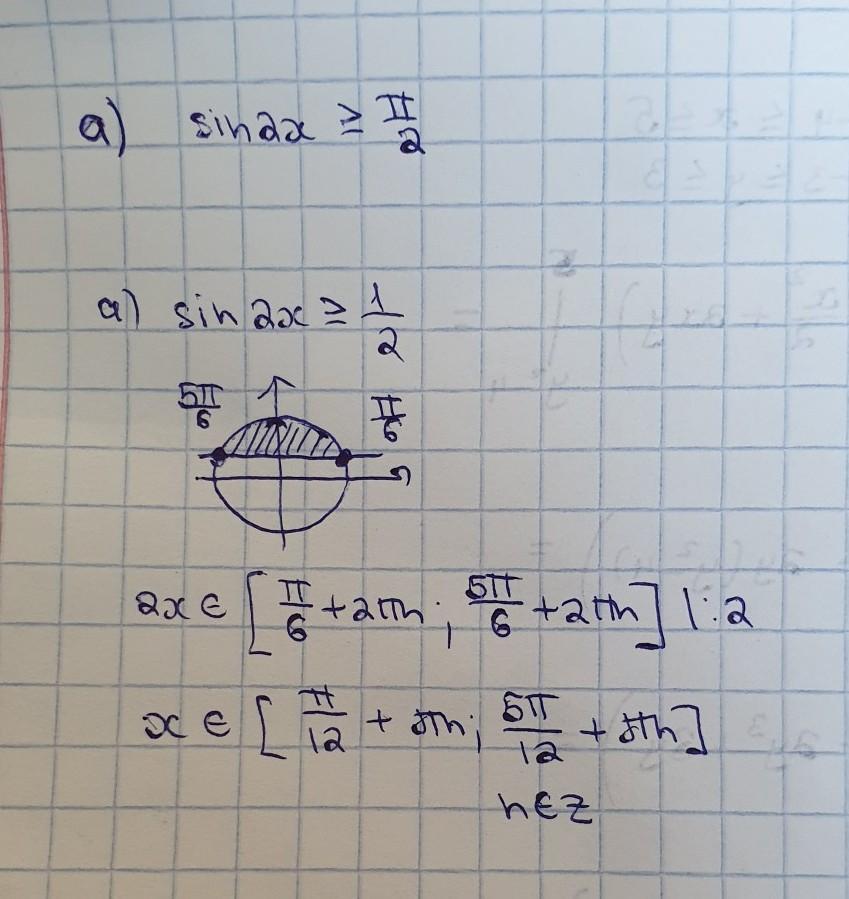 a) sin2x ≥ π/2
a) sin 2x ≥ 1/2
5π/6 π/6
2x ∈ [π/6 + 2πn; 5π/6 + 2πn] |:2
x ∈ [π/12 + πn; 5π/12 + πn]
n∈Z